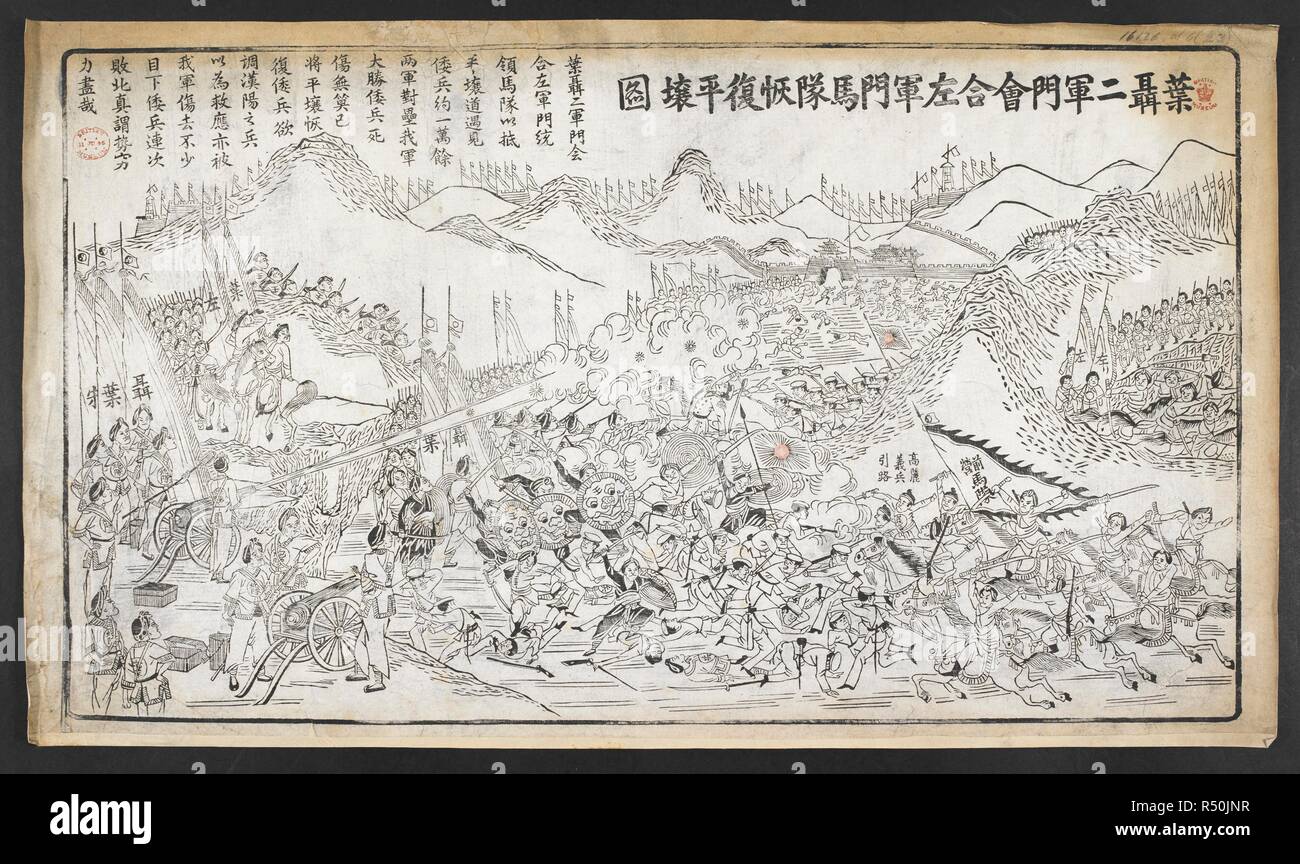 葉聶二軍門會合左軍門馬隊恢復平壤圖
葉聶二軍門会
合左軍門統
領馬隊以抵
平壤道遇見
倭兵約一萬餘
两軍對壘我軍
大勝倭兵死
傷無算已
將平壤恢
復倭兵欲
調漢陽之兵
以為救應亦被
我軍傷去不少
目下倭兵連次
敗北真謂勢窮
力盡哉
左
葉
聶
葉
聶
葉
左
左
高麗
義兵
引路
alamy
Image ID: R50JNR
www.alamy.com